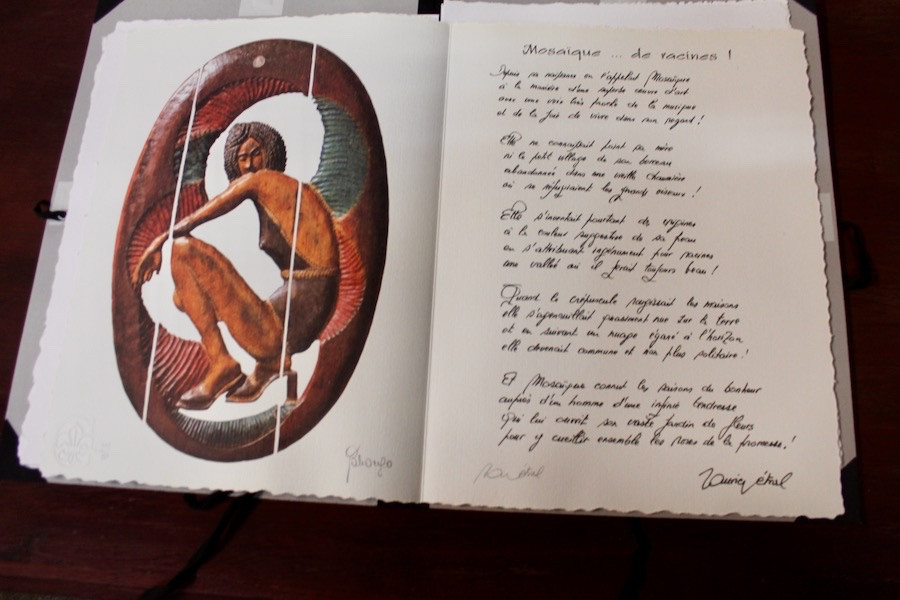 Mosaïque ... de racines !
Depuis sa naissance on l'appellait Mosaïque
à la manière d'une superbe œuvre d'art
avec une voix très proche de la musique
et de la joie de vivre dans son regard !
Elle ne connaissait point sa mère
ni le petit village de son berceau
abandonnée dans une vieille chaumière
où se réfugiaient les grands oiseaux !
Elle s'inventait pourtant des origines
à la couleur suggestive de sa peau
en s'attribuant ingénument pour racines
une vallée où il ferait toujours beau !
Quand le crépuscule rougissait les maisons
elle s'agenouillait quasiment nue sur la terre
et en suivant un nuage égaré à l'horizon
elle devenait commune et non plus solitaire !
Et Mosaïque connut les saisons du bonheur
auprès d'un homme d'une infinie tendresse
qui lui ouvrit son vaste jardin de fleurs
pour y cueillir ensemble les roses de la promesse !